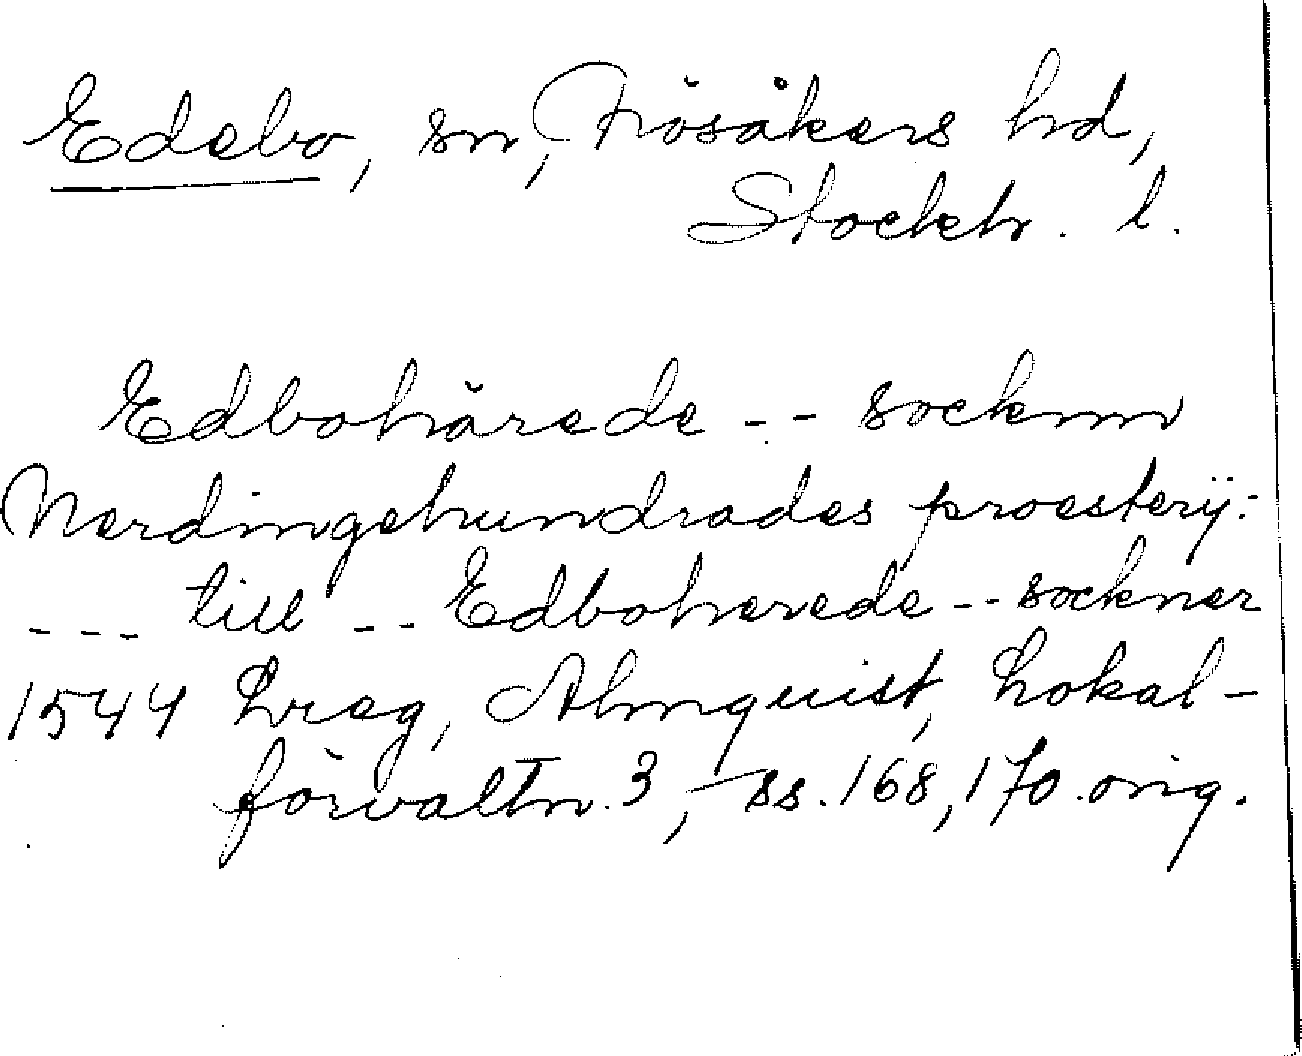 Edebo, sn, Frösåkers hd,
Stockh. l.
Edbohärede -- socknn
Nerdingehundrades proesterij:
--- till -- Edboherede -- sockner
1544 Lreg, Almquist, Lokal-
förvaltn. 3, ss. 168, 170. orig.